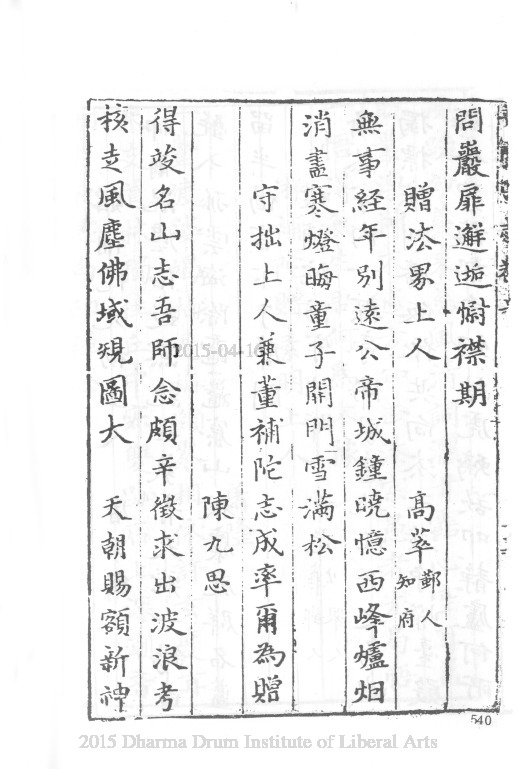 問巖扉邂逅慰襟期
贈法界上人 高萃 鄞人知府
無事経年别遠公帝城鐘曉憶西峰爐烟
消盡寒燈晦童子開門雪满松
守拙上人兼董補陀志成率爾為贈
陳九思
得竣名山志吾師念頗辛徴求出波浪考
核走風塵佛域規圖大 天朝賜額新神
2015-04-10
540
2015 Dharma Drum Institute of Liberal Arts